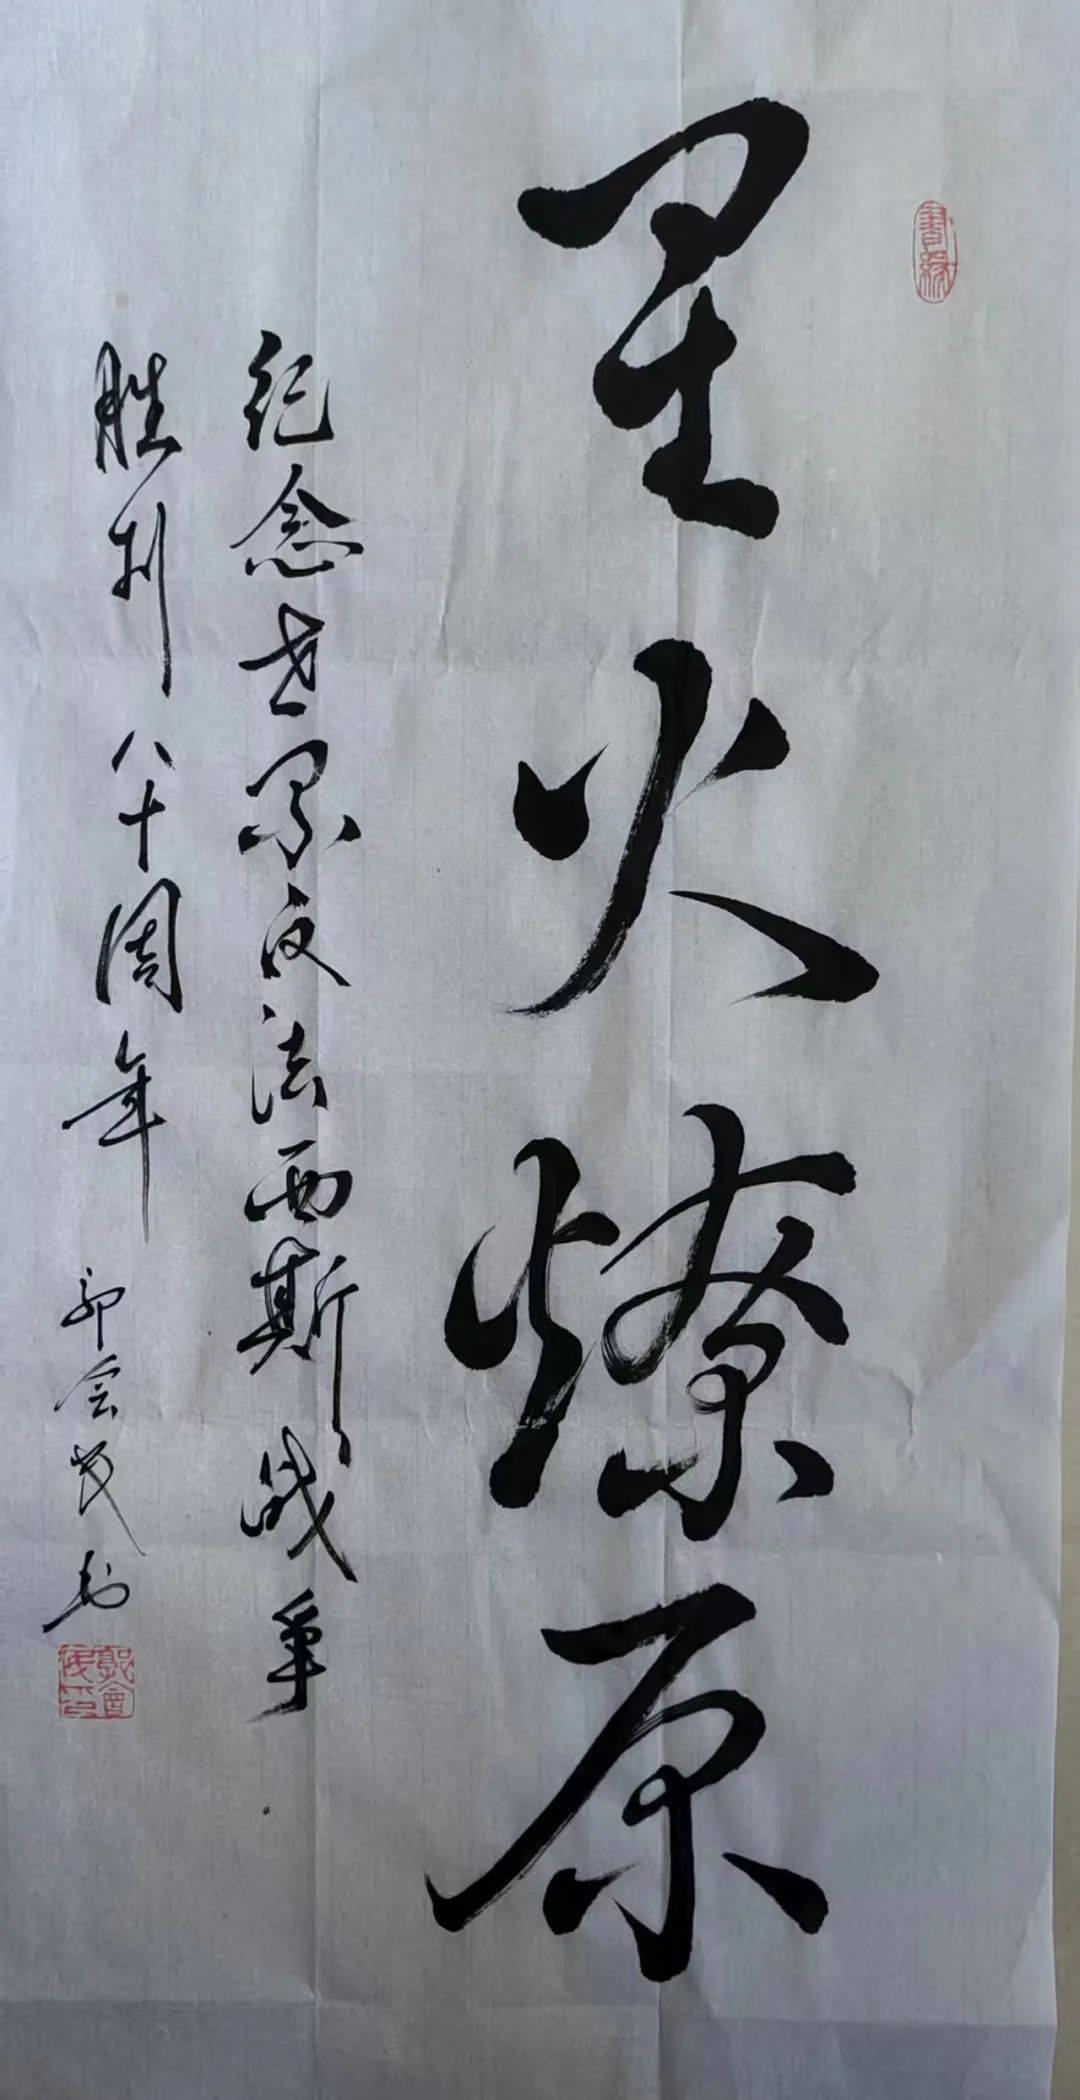 星火燎原
纪念世界反法西斯战争
胜利八十周年
郭会民书
書緣
郭會民印